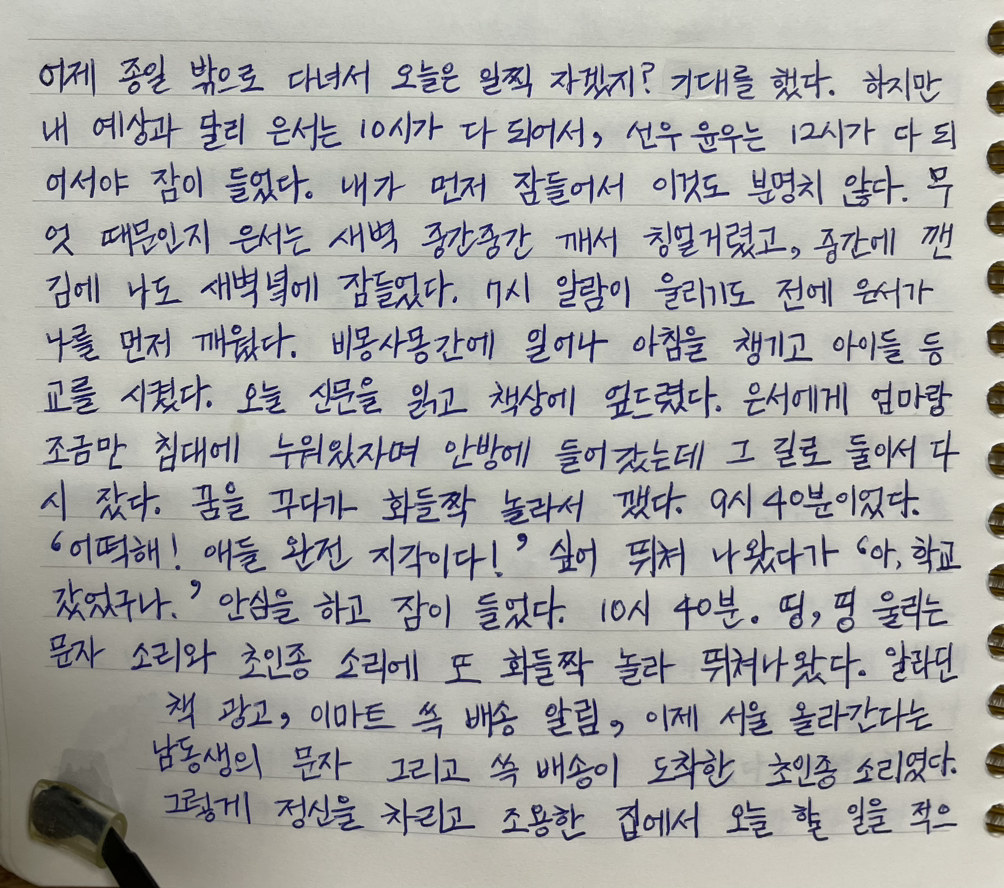 어제 종일 밖으로 다녀서 오늘은 일찍 자겠지? 기대를 했다. 하지만
내 예상과 달리 은서는 10시가 다 되어서, 선우 윤우는 12시가 다 되
어서야 잠이 들었다. 내가 먼저 잠들어서 이것도 분명치 않다. 무
엇 때문인지 은서는 새벽 중간중간 깨서 칭얼거렸고, 중간에 깬
김에 나도 새벽녘에 잠들었다. 7시 알람이 울리기도 전에 은서가
나를 먼저 깨웠다. 비몽사몽간에 일어나 아침을 챙기고 아이들 등
교를 시켰다. 오늘 신문을 읽고 책상에 엎드렸다. 은서에게 엄마랑
조금만 침대에 누워있자며 안방에 들어갔는데 그 길로 둘이서 다
시 잤다. 꿈을 꾸다가 화들짝 놀라서 깼다. 9시 40분이었다.
'어떡해! 애들 완전 지각이다!' 싶어 뛰쳐 나왔다가 '아, 학교
갔었구나.' 안심을 하고 잠이 들었다. 10시 40분. 띵, 띵 울리는
문자 소리와 초인종 소리에 또 화들짝 놀라 뛰쳐나왔다. 알라딘
책 광고, 이마트 쓱 배송 알림, 이제 서울 올라간다는
남동생의 문자 그리고 쓱 배송이 도착한 초인종 소리였다.
그렇게 정신을 차리고 조용한 집에서 오늘 할 일을 적으